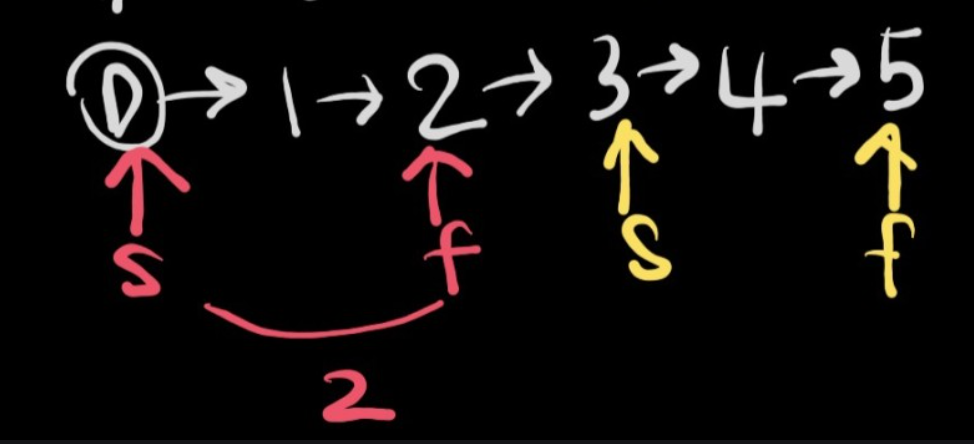 D → 1 → 2 → 3 → 4 → 5
s f s f
2